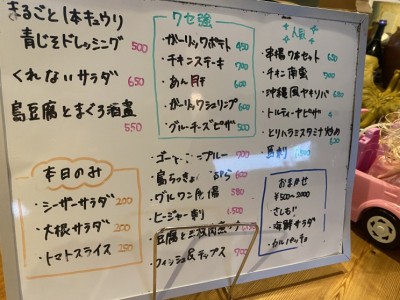 まるごと1本キュウリ
青じそドレッシング 500
くれないサラダ 650
島豆腐とまぐろ酒盗
550
本日のみ
・シーザーサラダ 200
・大根サラダ 200
・トマトスライス 250
クセ強
・ガーリックポテト 450
・チキンステーキ 700
・あん肝 600
・ガーリックシュリンプ 600
・ブルーチーズピザ 500
・ゴーヤーチャンプルー 700
・島らっきょ 天ぷら 600
・グルクン唐揚 580
・ヒージャー刺 1,500
・豆腐と三枚肉
・フィッシュ&チップス 700
人気
・串揚7本セット 650
・チキン南蛮 700
・沖縄風ヤキソバ
・トルティーヤピザ
・とりハラミスタミナ炒め
820
・馬刺
おまかせ
¥500~2000
・さしもり
・海鮮サラダ
・カルパッチョ